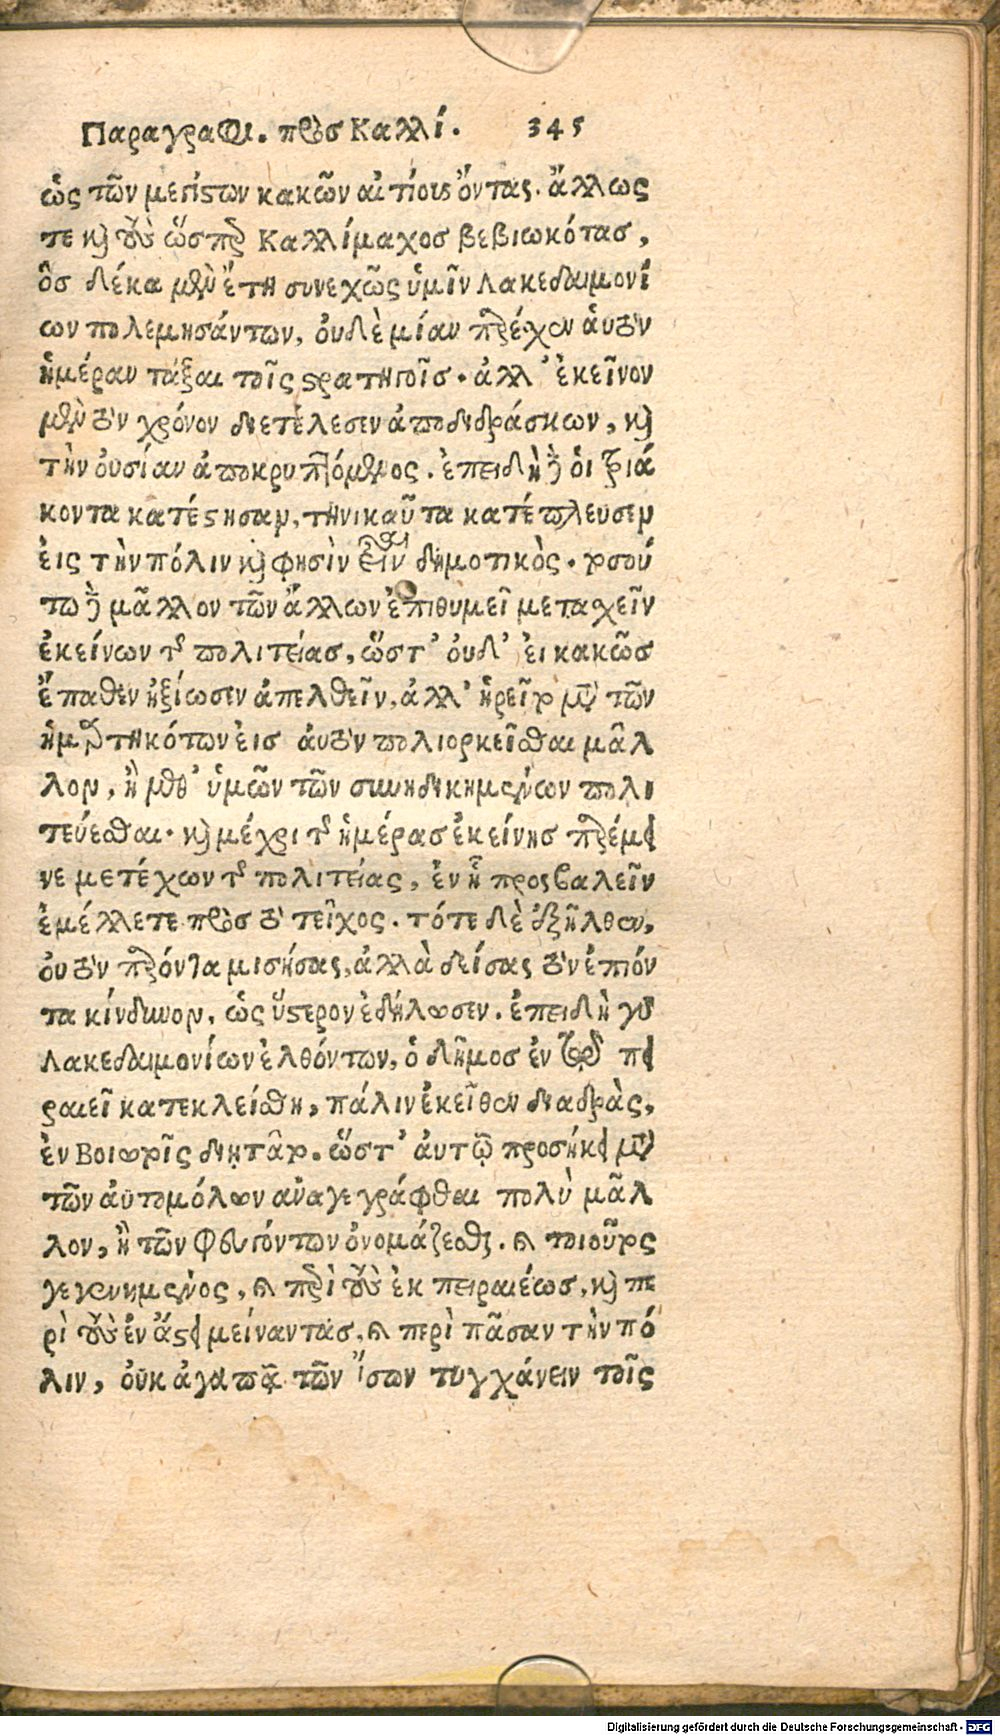 Παραγραφι. πρὸσ Καλλί. 345
ὡς τῶν μεγίστων κακῶν αἰτίους ὄντας. ἄλλως
τε καὶ τοὺσ ὥσπερ Καλλίμαχοσ βεβιωκότασ,
ὃσ δέκα μὲν ἔτη συνεχῶς ὑμῖν Λακεδαιμονί
ων πολεμησάντων, οὐδὲ μίαν παρέχεν ἁυτὸν
ἡμέραν τάξαι τοῖς στρατηγοῖσ. ἀλλ' ἐκεῖνον
μὲν τὸν χρόνον διετέλεσεν ἀποδιδράσκων, καὶ
τὴν οὐσίαν ἀποκρυπτόμενος. ἐπειδὴ δὲ ὁι τριά
κοντα κατέστησαν, τηνικαῦτα κατέπλευσεν
ἐις τὴν πόλιν καὶ φησὶν εἶναι δημοτικὸς. τοσού
τω δὲ μᾶλλον τῶν ἄλλων ἐπιθυμεῖ μετασχεῖν
ἐκείνων τῆς πολιτείασ, ὥστ' ὀυδ' ἐι κακῶσ
ἔπαθεν ἠξίωσεν ἀπελθεῖν, ἀλλ' ἡρεῖτο μετὰ τῶν
ἡμαρτηκότων ἐισ ἀυτὸν πολιορκεῖσθαι μᾶλ
λον, ἢ μεθ' ὑμῶν τῶν συνηδικημένων πολι
τεύεσθαι. καὶ μέχρι τῆς ἡμέρασ ἐκείνησ παρέμει
νε μετέχων τῆς πολιτείας, ἐν ᾗ προσβαλεῖν
ἐμέλλετε πρὸσ τὸ τεῖχος. τότε δὲ ἐξῆλθεν,
ὀυ τὸν παρόντα μισήσας, ἀλλὰ δείσας τὸν ἐπιόν
τα κίνδυνον, ὡς ὕστερον ἐδήλωσεν. ἐπειδὴ γὰρ
Λακεδαιμονίων ἐλθόντων, ὁ δῆμοσ ἐν τῷ πει
ραιεῖ κατεκλείσθη, πάλιν ἐκεῖθεν διαδρὰς,
ἐν Βοιωτοῖς διῃτᾶτο. ὥστ' ἀυτῷ προσήκει μετὰ
τῶν ἀυτομόλων ἀναγεγράφθαι πολὺ μᾶλ
λον, ἢ τῶν φευγόντων ὀνομάζεσθαι. καὶ τοιοῦτος
γεγενημένος, καὶ περὶ τοὺσ ἐκ πειραιέωσ, καὶ πε
ρὶ τοὺσ ἐν ἄστει μείναντάσ, καὶ περὶ πᾶσαν τὴν πό
λιν, ὀυκ ἀγαπᾷ τῶν ἴσων τυγχάνειν τοῖς
Digitalisierung gefördert durch die Deutsche Forschungsgemeinschaft - DFG